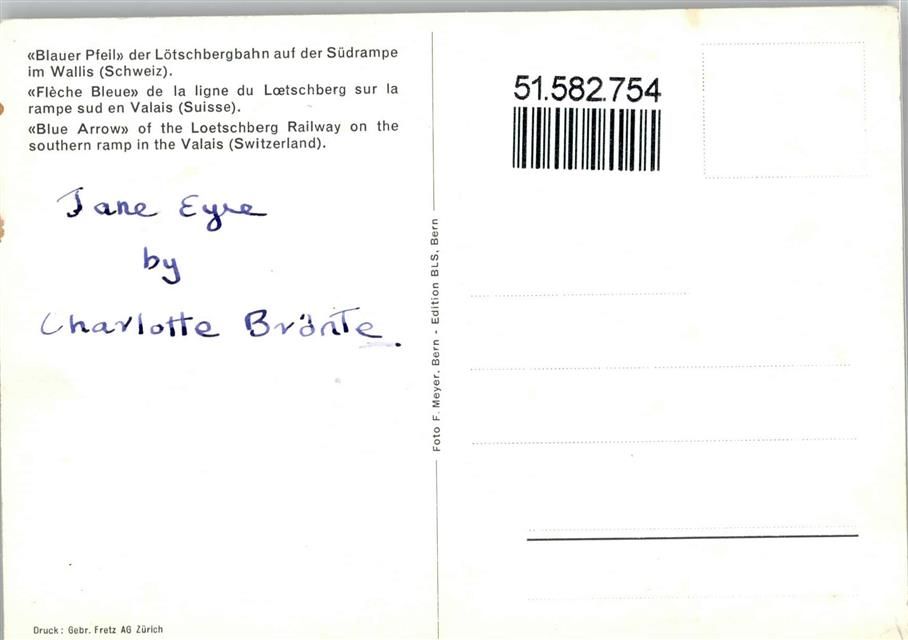 «Blauer Pfeil» der Lötschbergbahn auf der Südrampe
im Wallis (Schweiz).
«Flèche Bleue» de la ligne du Lœtschberg sur la
rampe sud en Valais (Suisse).
«Blue Arrow» of the Loetschberg Railway on the
southern ramp in the Valais (Switzerland).
Jane Eyre
by
Charlotte Bröntë.
Druck: Gebr. Fretz AG Zürich
Foto F. Meyer, Bern - Edition BLS, Bern
51.582.754